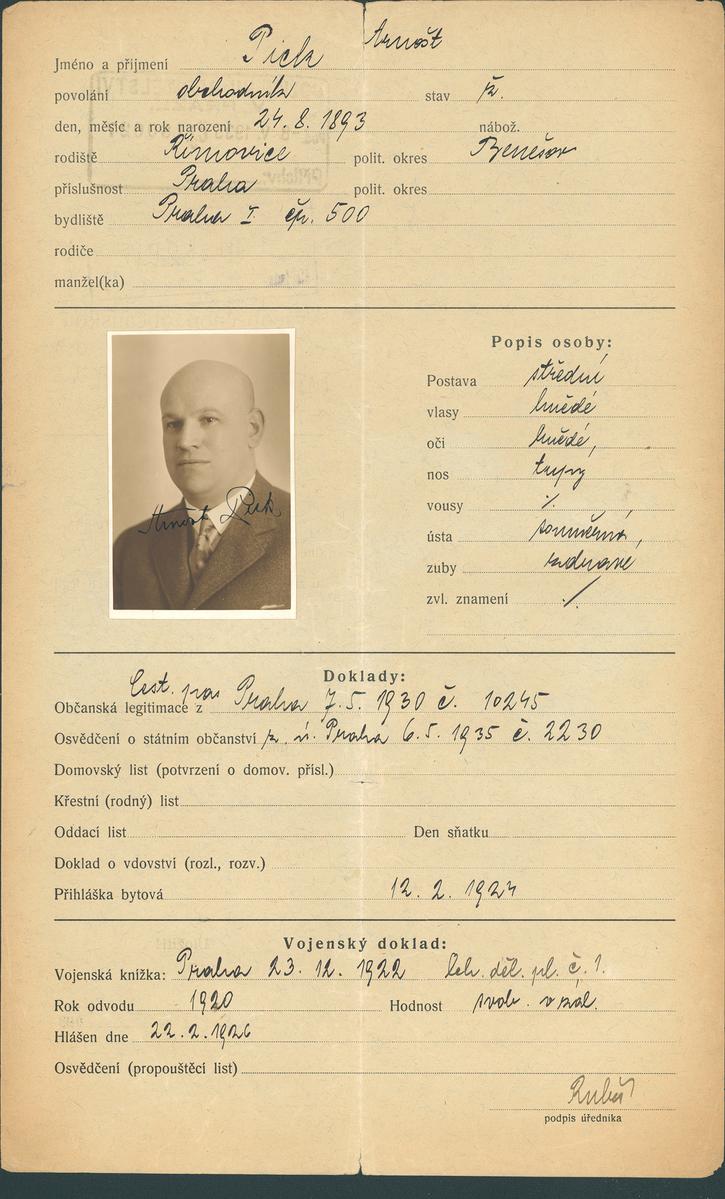 Jméno a příjmení Pick Arnošt
povolání obchodník stav ž.
den, měsíc a rok narození 24. 8. 1893 nábož.
rodiště Římovice polit. okres Benešov
příslušnost Praha polit. okres
bydliště Praha I čp. 500
rodiče
manžel(ka)
Popis osoby:
Postava střední
vlasy hnědé
oči hnědé,
nos tupý
vousy ·/.
ústa souměrná,
zuby zdravé
zvl. znamení ·/.
Arnošt Pick
Doklady:
Cest. pas
Občanská legitimace z Praha 7. 5. 1930 č. 10245
Osvědčení o státním občanství z. ú. Praha 6. 5. 1935 č. 2230
Domovský list (potvrzení o domov. přísl.)
Křestní (rodný) list
Oddací list Den sňatku
Doklad o vdovství (rozl., rozv.)
Přihláška bytová 12. 2. 1924
Vojenský doklad:
Vojenská knížka: Praha 23. 12. 1922 děl. pl. č. 1.
Rok odvodu 1920 Hodnost svob. v zál.
Hlášen dne 22. 2. 1926
Osvědčení (propouštěcí list)
podpis úředníka